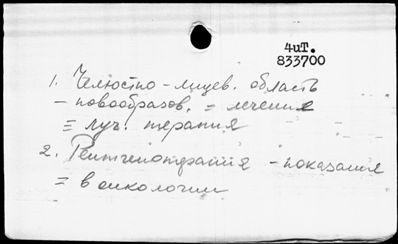 4иТ.
833700
1. Челюстно-лицев. область
- новообразов. = лечение
= луч. терапия
2. Рентгенотерапия - показания
= в онкологии